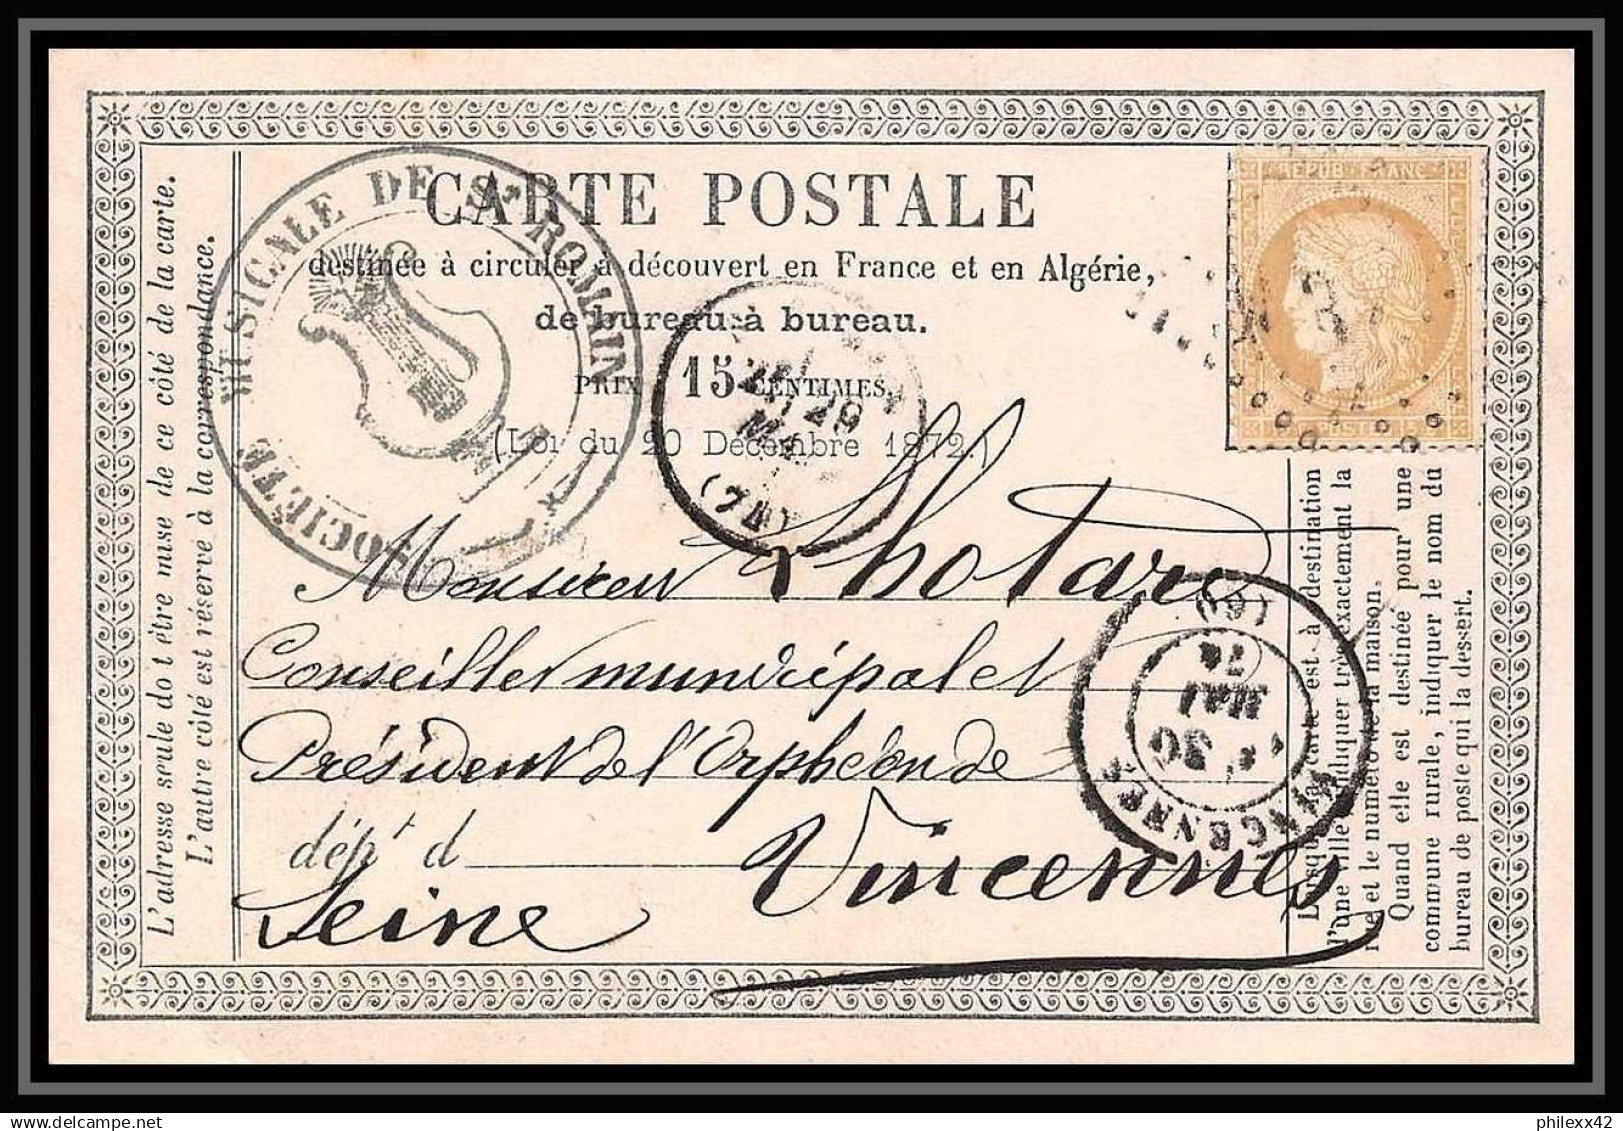 CARTE POSTALE
destinée à circuler à découvert en France et en Algérie,
de bureau à bureau.
PRIX 15 CENTIMES.
(Loi du 20 Décembre 1872.)
SOCIÉTÉ MUSICALE DE St ROMAIN
REPUB FRANC
POSTES
29
(74)
Monsieur Lhotard
Conseiller municipal et
Président de l'Orphéon de
dépt d Vincennes
Seine
VINCENNES
MAI
74
L'adresse seule doit être mise de ce côté de la carte.
L'autre côté est réservé à la correspondance.
Lorsque la carte est à destination
l'une ville indiquer très exactement la
rue et le numéro de la maison.
Quand elle est destinée pour une
commune rurale, indiquer le nom du
bureau de poste qui la dessert.
philexx42